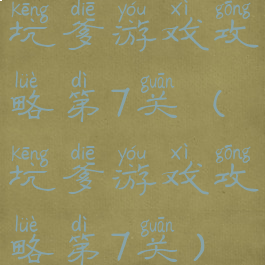 kēng diē yóu xì gōng
坑爹游戏攻
lüè dì guān
略第7关（
kēng diē yóu xì gōng
坑爹游戏攻
lüè dì guān
略第7关）